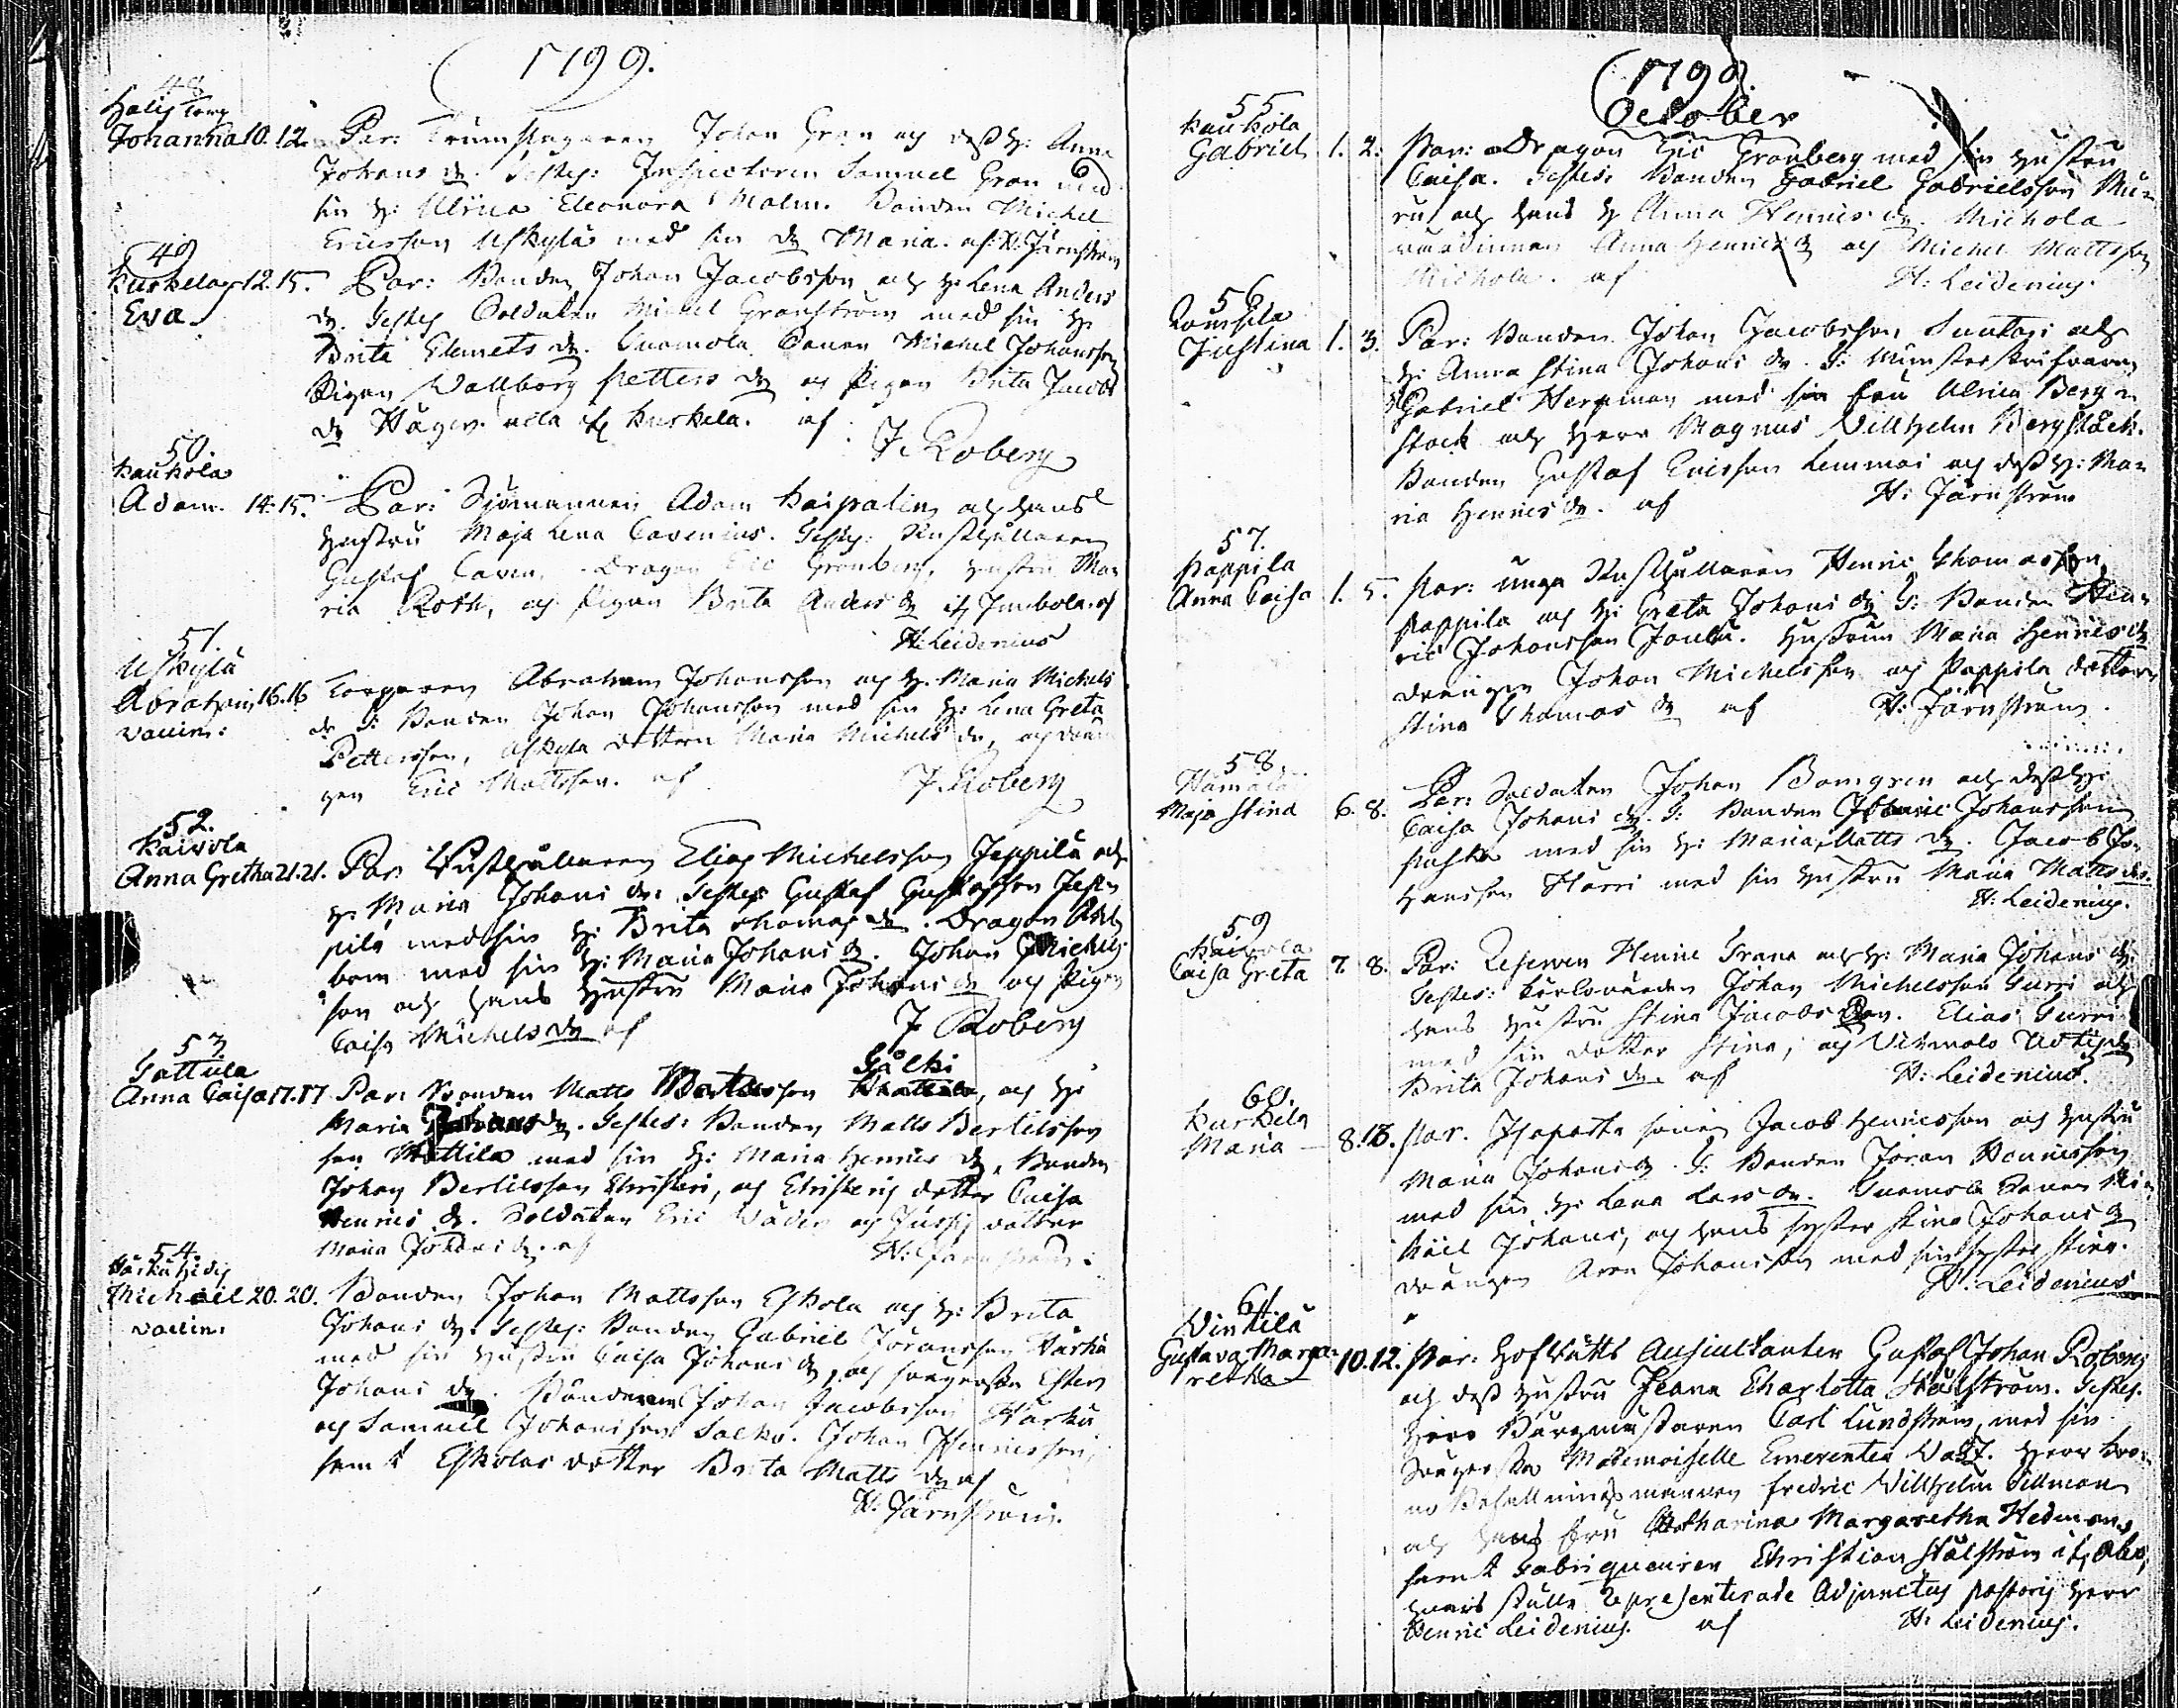 1799.
48
Halis Torp
Johanna 10. 12. Par: Trumslagaren Johan Gran och dess h: Anna
Johans dr. Testes: Inspectoren Samuel Gran med
sin h: Ulrica Eleonora Malm. Bonden Michel
Ericsson Uskyla med sin dr Maria. af H. Järnström
49
Kurkela 12. 15. Par: Bonden Johan Jacobsson och h: Lena Anders
Eva
dr. Testes Soldaten Michel Granström med sin h:
Brita Clemets dr. Suomola sonen Michel Johansson
Pigan Wallborg Petters dr och Pigan Brita Jacobs
dr Kurkela. af
J. Roberg
50.
Kaukola
Adam. 14. 15. Par: Sjömannen Adam Kaipalin och hans
hustru Maja Lena Cavenius. Testes: Rusthållaren
Gustaf Caven, Dragon Eric Granberg, hustru Ma
ria Roth, och Pigan Brita Anders dr if. Junbola. af
H: Leidenius
51.
Uskylä
Abraham 16. 16 Torparen Abraham Johansson och h. Maria Michels
vaccin:
dr T: Bonden Johan Johansson med sin h: Lena Greta
Pettersson, Uskyla dottern Maria Michels dr, och drän
gen Eric Mattsson. af J. Roberg
52.
Kaivola
Anna Gretha 21. 21. Par: Rusthållaren Elias Michelsson Jeppilä och
h: Maria Johans dr: Testes: Gustaf Gustafsson Jep
pilä med sin h: Brita Thomas dr. Dragon
bom med sin h: Maria Johans dr. Johan Michels
son och hans hustru Maria Johans dr och Pigan
Caisa Michels dr af J. Roberg
53.
Tattula
Sälki
Anna Caisa 17. 17 Par: Bonden Matts Bertilsson , och h:
Maria Johans dr. Testes: Bonden Matts Bertilsson
Mattila med sin h: Maria Henrics dr, Bonden
Johan Bertilsson Christeri, och Christeris dotter Caisa
Henrics dr. Soldaten Eric Wäder och Jussis dotter
Maria Johans dr. af H: Järnström.
54.
Michael 20. 20. Bonden Johan Mattsson Eskola och h: Brita
vaccin:
Johans dr. Testes: Bonden Gabriel Jöransson Härkä
med sin hustru Caisa Johans dr, och Ester
Johans dr. Bönderne Johan Jacobsson Härkä
och Samuel Johansson Salko. Johan Henricsson,
samt Eskolas dotter Brita Matts dr af
H. Järnström.
1799.
October
55
Kaukola
Gabriel 1. 2. Par: Dragon Eric Granberg med sin hustru
Caisa. Testes: Bonden Gabriel Gabrielsson Mu
ru och hans h Anna Henrics dr. Michola
värdinnan Anna Henrics dr och Michel Mattsson
Michola. af H. Leidenius.
56
Justina 1. 3. Par: Bonden Johan Jacobsson Suutari och
h: Anna Stina Johans dr. T: Mönsterskrifvaren
Gabriel Hergman med sin fru Ulrica Berg
stock och Herr Magnus Willhelm Bergstock.
Bonden Gustaf Ericsson Lemmoi och dess h: Ma
ria Henrics dr. af H: Järnström
57.
Pappila
Anna Caisa 1. 5. Par: unga Rusthållaren Henric Thomasson
Pappila och h: Greta Johans dr T: Bonden Hen
ric Johansson Jaula. Hustrun Maria Henrics dr
drängen Johan Michelsson och Pappila dottern
Stina Thomas dr af H: Järnström.
58.
Maja Stina 6. 8. Par: Soldaten Johan Bomgren och dess h:
Caisa Johans dr. T: Bonden Johansson
med sin h: Maria Matts dr. Jacob Jo
hansson Härri med sin hustru Maria Matts dr.
H. Leidenius.
59
Kaivola
Caisa Greta 7. 8. Par: Reserven Henric Trana och h: Maria Johans dr.
Testes: Johan Michelsson Gurri och
hans hustru Stina Jacobs Dr. Elias Gurri
med sin dotter Stina, och
Brita Johans dr. af H. Leidenius.
60.
Kurkela
Maria 8. 13. Par. sonen Jacob Henricsson och hustru
Maria Johans dr. T: Bonden Jöran Henricsson
med sin h: Lena Lars dr. Suomola sonen Mi
kael Johans, och hans syster Stina Johans dr
drängen Aron Johansson med sin syster Stina.
H. Leidenius
61.
Vintilä
Gustava Marga 10. 12. Par: Hofrätts Auscultanten Gustaf Johan Roberg
retha
och dess hustru Jeana Charlotta Stålström. Testes.
Herr Borgmästaren Carl Lundström, med sin
Mademoiselle Emerentia. Herr Kro
no Befallningsmannen Fredric Willhelm Tillman
och hans fru Catharina Margaretha Hedman,
samt Fabriqueuren Christian Stålström if. Åbo,
hvars ställe representerade Adjunctus Pastoris Herr
Henric Leidenius. af H. Leidenius.